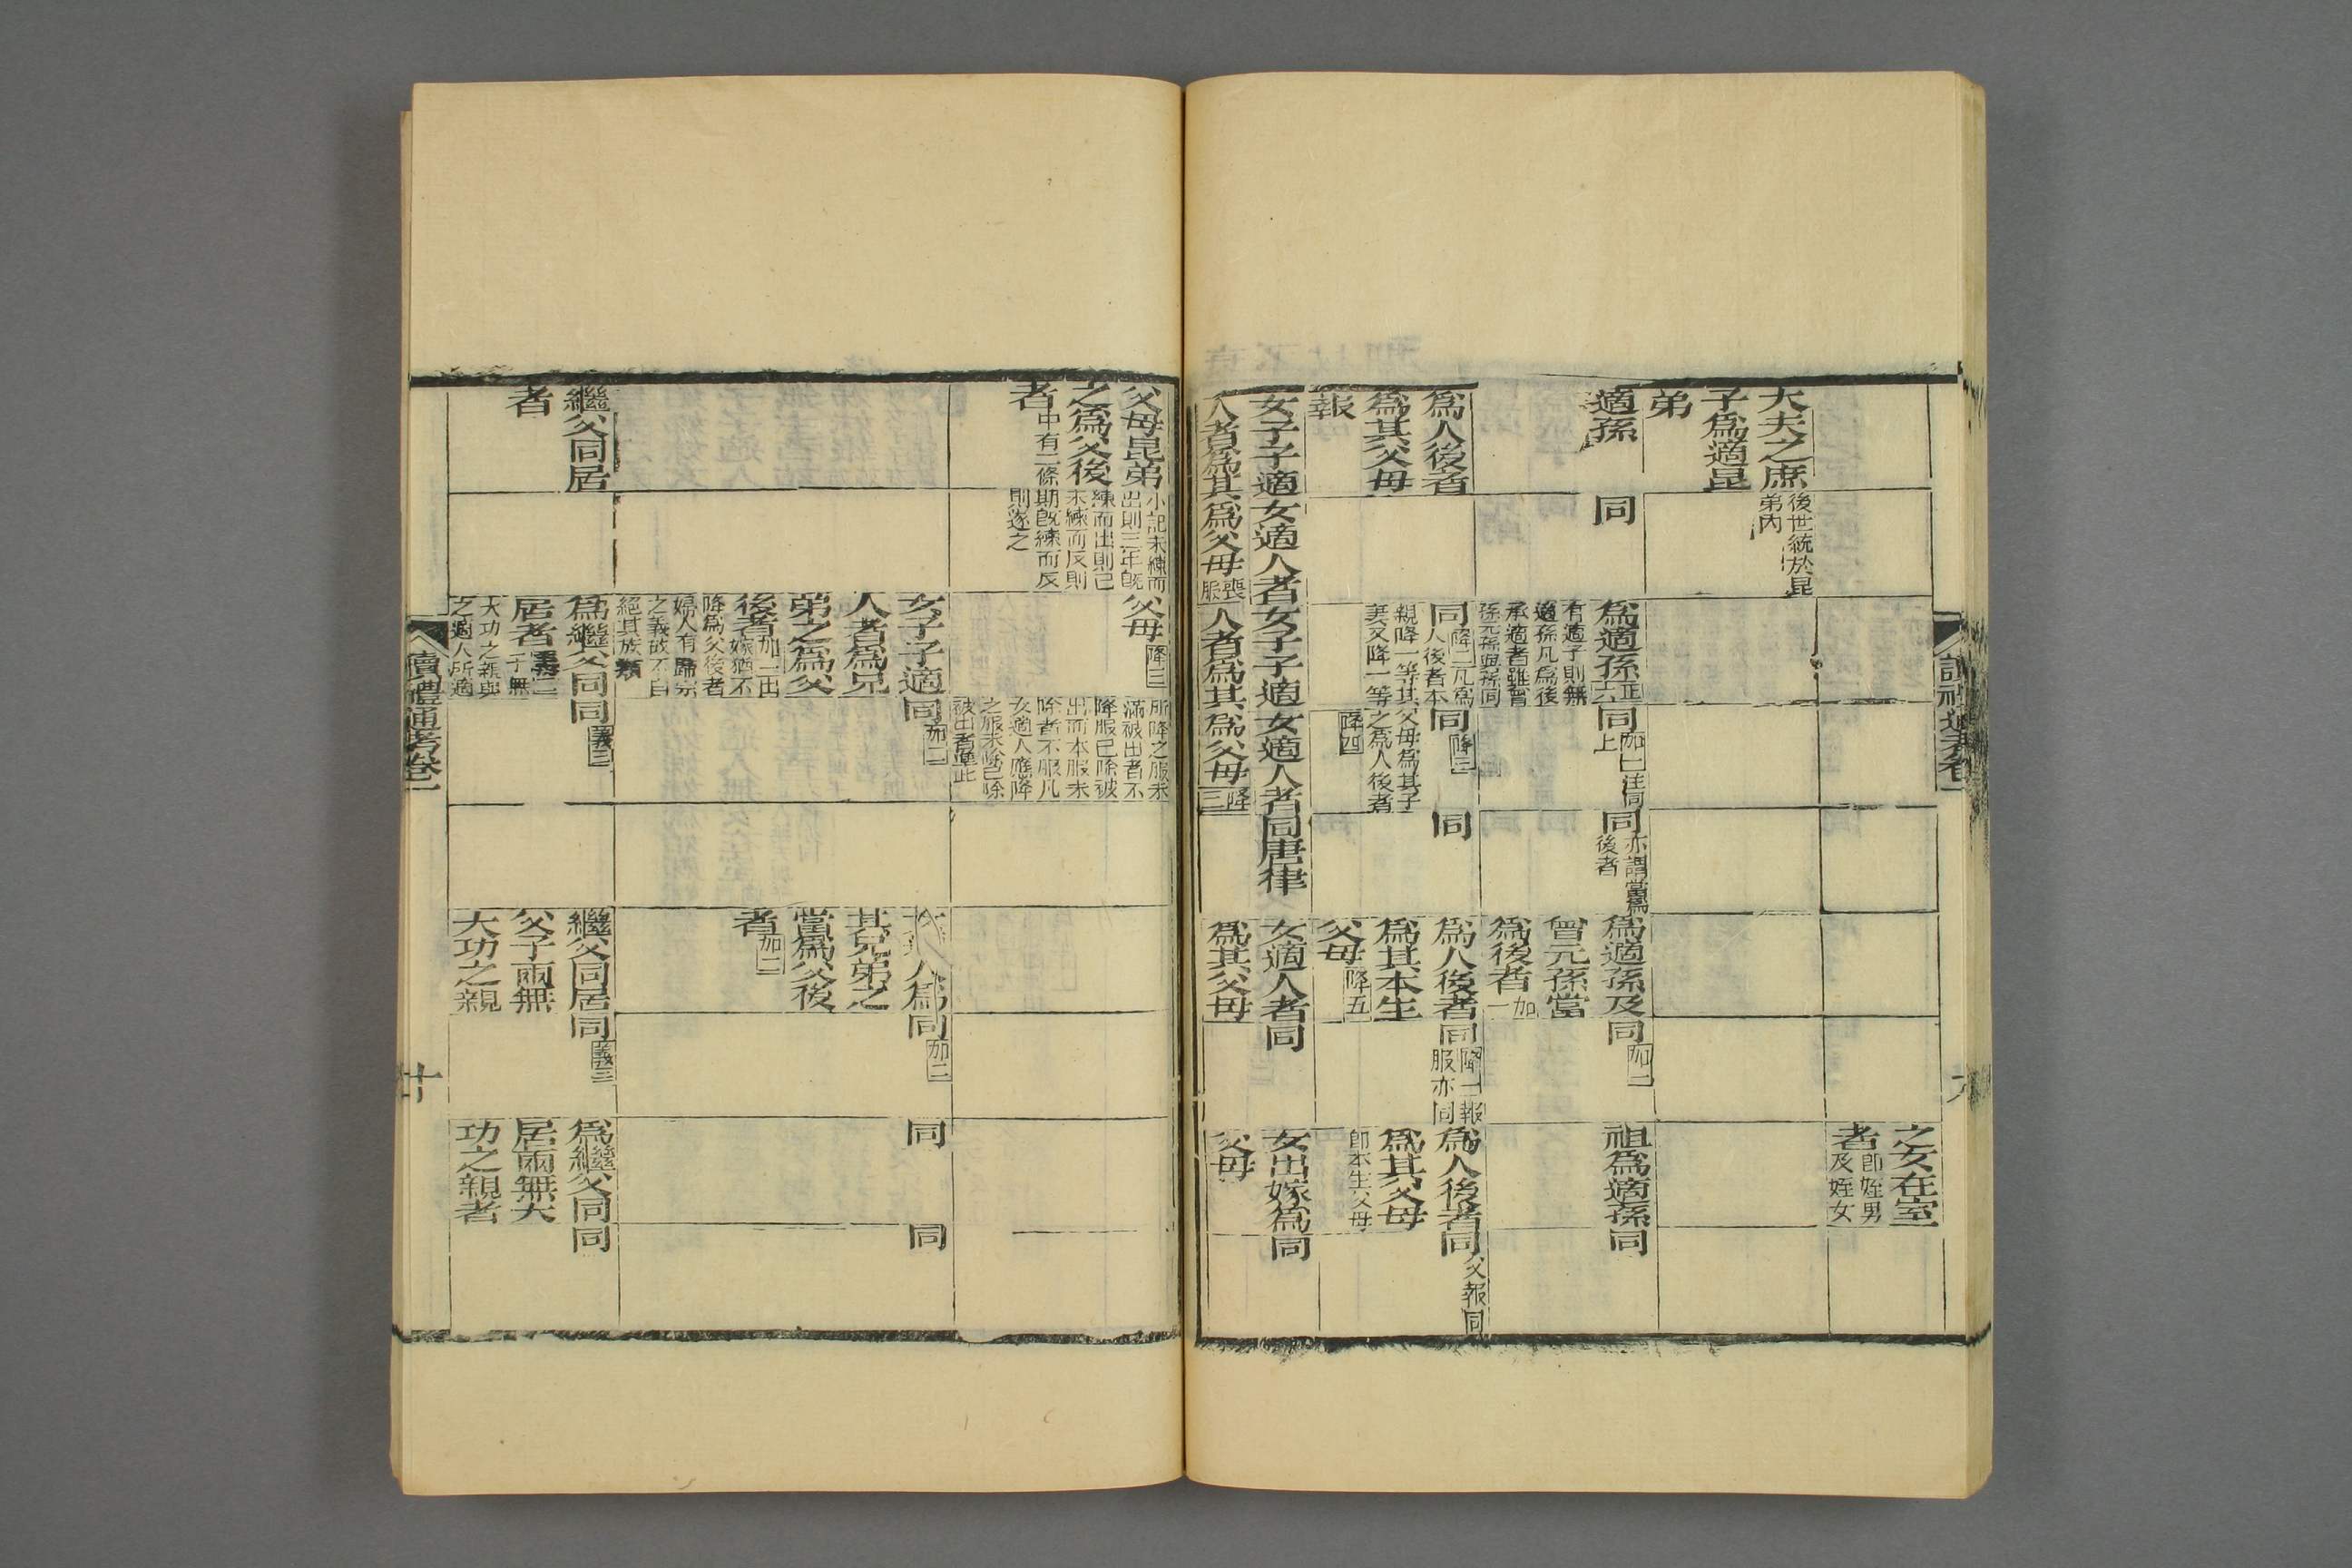 讀禮通考卷一
之女在室
者
即姪男
及姪女
大夫之庶
子爲適昆
弟
後世統於昆
弟內
適孫
同
爲適孫
正六
有適子則無
適孫凡爲後
承適者雖曾
孫元孫與孫同
同
加一注同
上
同
亦謂當爲
後者
爲適孫及
曾元孫當
爲後者
加一
同
加一
祖爲適孫
同
爲人後者
爲其父母
報
同
降二凡爲
人後者本
親降一等其
妻又降一等
同
降三
父母爲其子
之爲人後者
降四
同
爲人後者
爲其本生
父母
降五
同
降一報
服亦同
爲人後者
爲其父母
即本生父母
同
父報同
女子子適
人者爲其
女適人者
爲父母
喪服
女子子適
人者爲其
女適人者
爲父母
降三
同唐律
女適人者
爲其父母
同
女出嫁爲
父母
同
父母昆弟
之爲父後
者
中有二條
小記未練而
出則三年旣
練而出則已
未練而反則
期旣練而反
則遂之
父母
降三
所降之服未
滿被出者不
降服已除被
出而本服未
除者不服凡
女適人應降
之服未除已除
被出者準此
女子子適
人者爲兄
弟之爲父
後者
加一出
嫁猶不
降爲父後者
婦人有歸宗
之義故不自
絕其族類
同
加二
人爲
其兄弟之
當爲父後
者
加二
同
加二
同
同
繼父同居
者
爲繼父同
居者
義二
子無
大功之親與
之適人所適
同
義三
繼父同居
父子兩無
大功之親
同
義三
爲繼父同
居兩無大
功之親者
同
讀禮通考卷一
廿